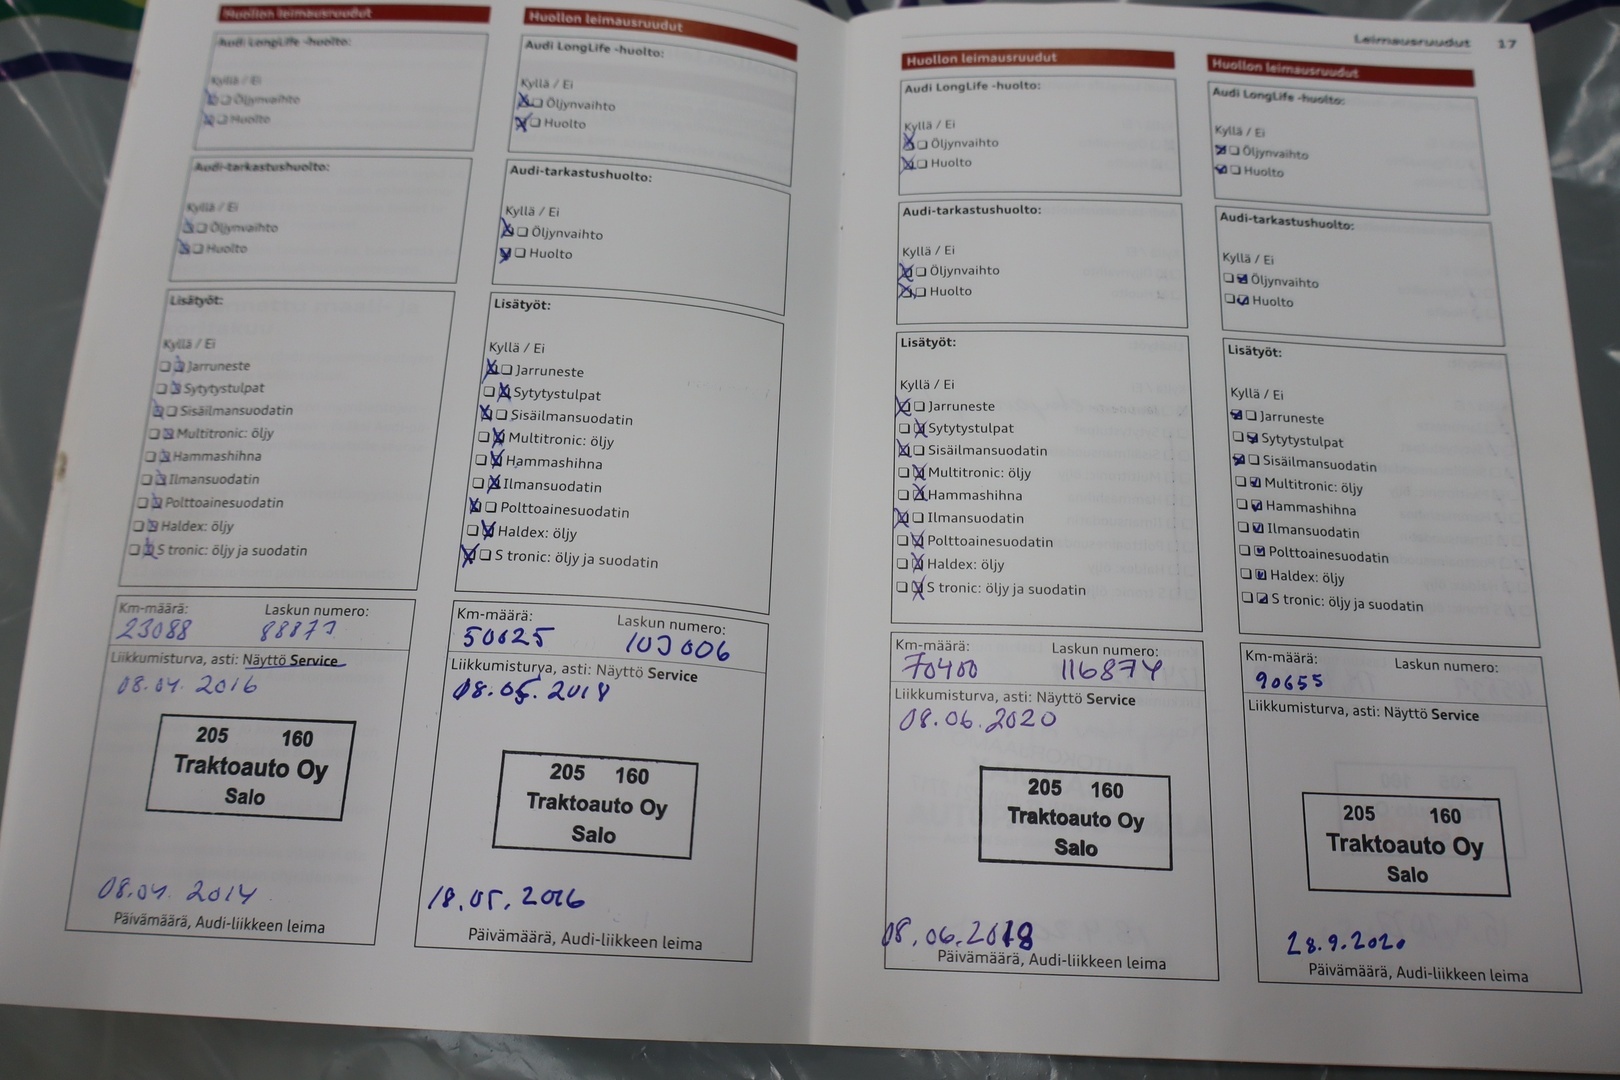 Leimausruudut 17
Huollon leimausruudut
Audi LongLife -huolto:
Kyllä / Ei
Öljynvaihto
Huolto
Audi-tarkastushuolto:
Kyllä / Ei
Öljynvaihto
Huolto
Lisätyöt:
Kyllä / Ei
Jarruneste
Sytytystulpat
Sisäilmansuodatin
Multitronic: öljy
Hammashihna
Ilmansuodatin
Polttoainesuodatin
Haldex: öljy
S tronic: öljy ja suodatin
Km-määrä: Laskun numero:
23088 88873
Liikkumisturva, asti: Näyttö Service
08.04. 2016
205 160
Traktoauto Oy
Salo
08.04. 2014
Päivämäärä, Audi-liikkeen leima
Huollon leimausruudut
Audi LongLife -huolto:
Kyllä / Ei
Öljynvaihto
Huolto
Audi-tarkastushuolto:
Kyllä / Ei
Öljynvaihto
Huolto
Lisätyöt:
Kyllä / Ei
Jarruneste
Sytytystulpat
Sisäilmansuodatin
Multitronic: öljy
Hammashihna
Ilmansuodatin
Polttoainesuodatin
Haldex: öljy
S tronic: öljy ja suodatin
Km-määrä: Laskun numero:
50625 103006
Liikkumisturva, asti: Näyttö Service
08.05.2018
205 160
Traktoauto Oy
Salo
18.05.2016
Päivämäärä, Audi-liikkeen leima
Huollon leimausruudut
Audi LongLife -huolto:
Kyllä / Ei
Öljynvaihto
Huolto
Audi-tarkastushuolto:
Kyllä / Ei
Öljynvaihto
Huolto
Lisätyöt:
Kyllä / Ei
Jarruneste
Sytytystulpat
Sisäilmansuodatin
Multitronic: öljy
Hammashihna
Ilmansuodatin
Polttoainesuodatin
Haldex: öljy
S tronic: öljy ja suodatin
Km-määrä: Laskun numero:
70400 116874
Liikkumisturva, asti: Näyttö Service
08.06.2020
205 160
Traktoauto Oy
Salo
08.06.2018
Päivämäärä, Audi-liikkeen leima
Huollon leimausruudut
Audi LongLife -huolto:
Kyllä / Ei
Öljynvaihto
Huolto
Audi-tarkastushuolto:
Kyllä / Ei
Öljynvaihto
Huolto
Lisätyöt:
Kyllä / Ei
Jarruneste
Sytytystulpat
Sisäilmansuodatin
Multitronic: öljy
Hammashihna
Ilmansuodatin
Polttoainesuodatin
Haldex: öljy
S tronic: öljy ja suodatin
Km-määrä: Laskun numero:
90655
Liikkumisturva, asti: Näyttö Service
205 160
Traktoauto Oy
Salo
28.9.2020
Päivämäärä, Audi-liikkeen leima